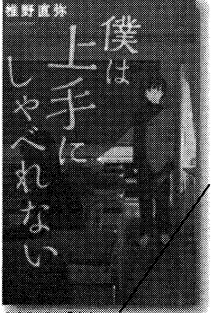 椎野直弥
僕は
上手に
しゃべれない